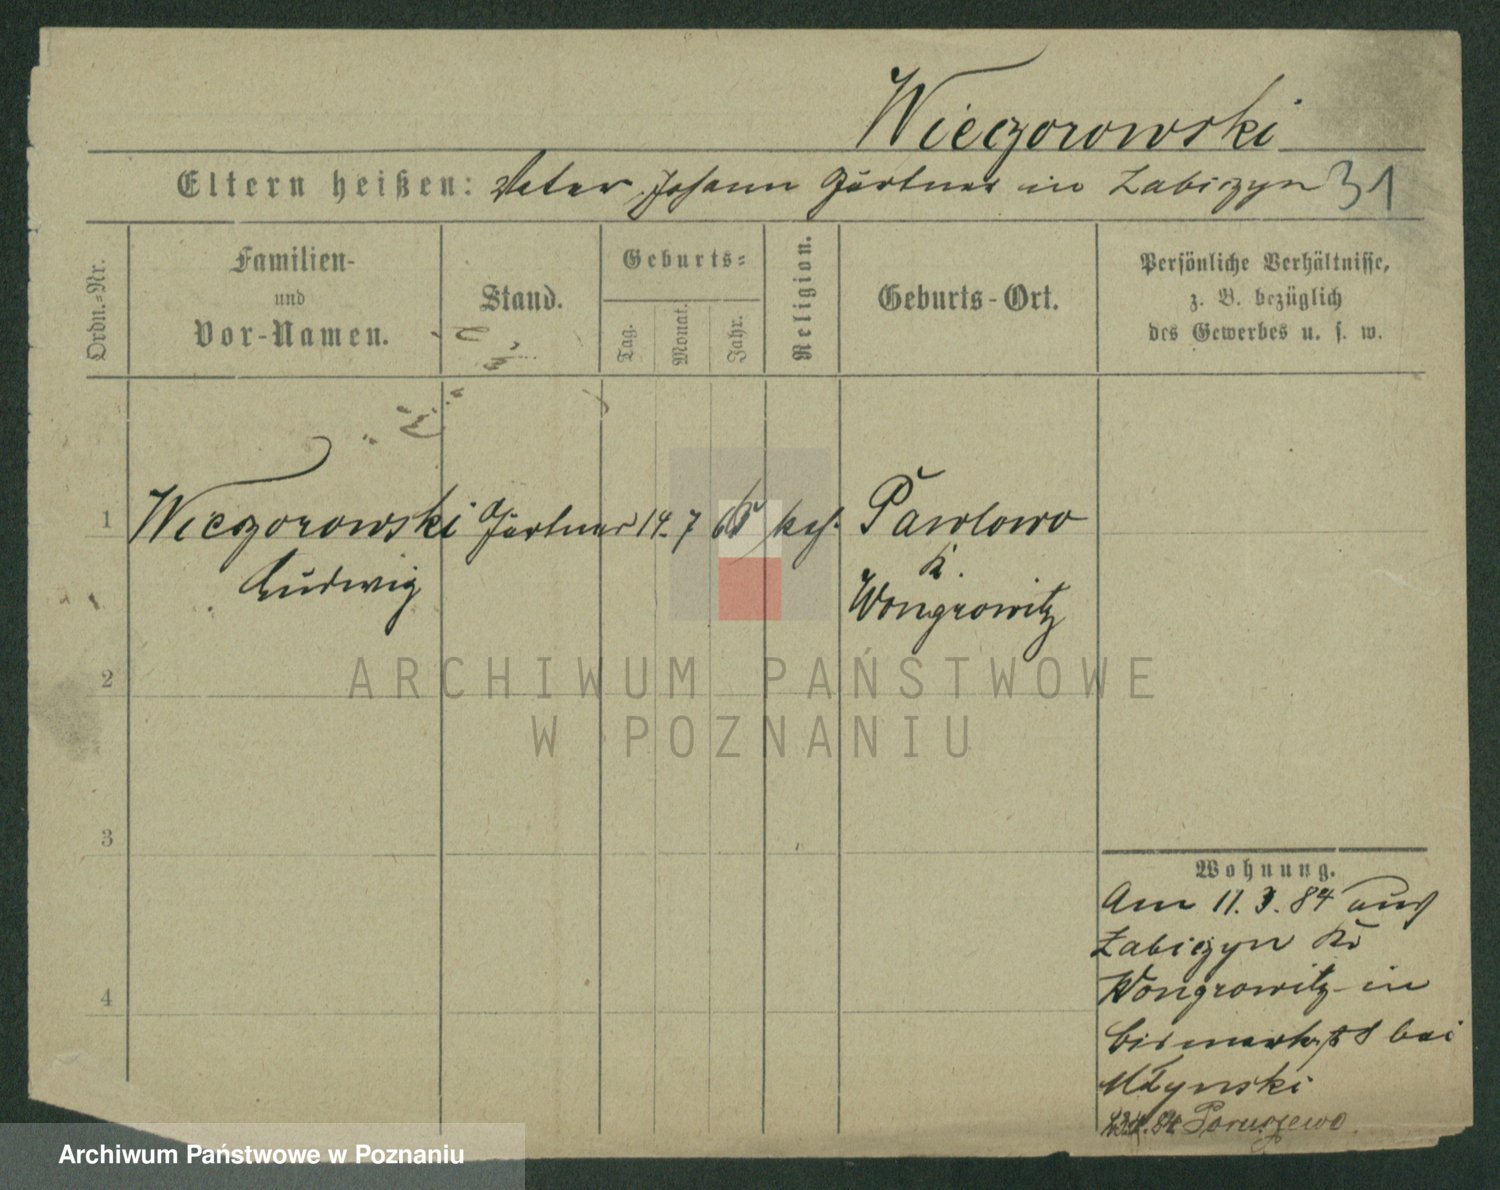 Wieczorowski
Eltern heißen: Vater Johann Gärtner in Zabiczyn 31
Ordn.-Nr.
Familien-
und
Vor-Namen.
Stand.
Geburts-
Tag.
Monat.
Jahr.
Religion.
Geburts-Ort.
Persönliche Verhältnisse,
z. B. bezüglich
des Gewerbes u. s. w.
1 Wieczorowski Gärtner 14. 7 kath. Pawlowo
Ludwig
K.
Wongrowitz
2
3
4
Wohnung.
Am 11. 3. 84 aus
Zabiczyn Kr
Wongrowitz in
Bismarkstr 8 bei
Młynski
84 Paruszewo
ARCHIWUM PAŃSTWOWE
W POZNANIU
Archiwum Państwowe w Poznaniu